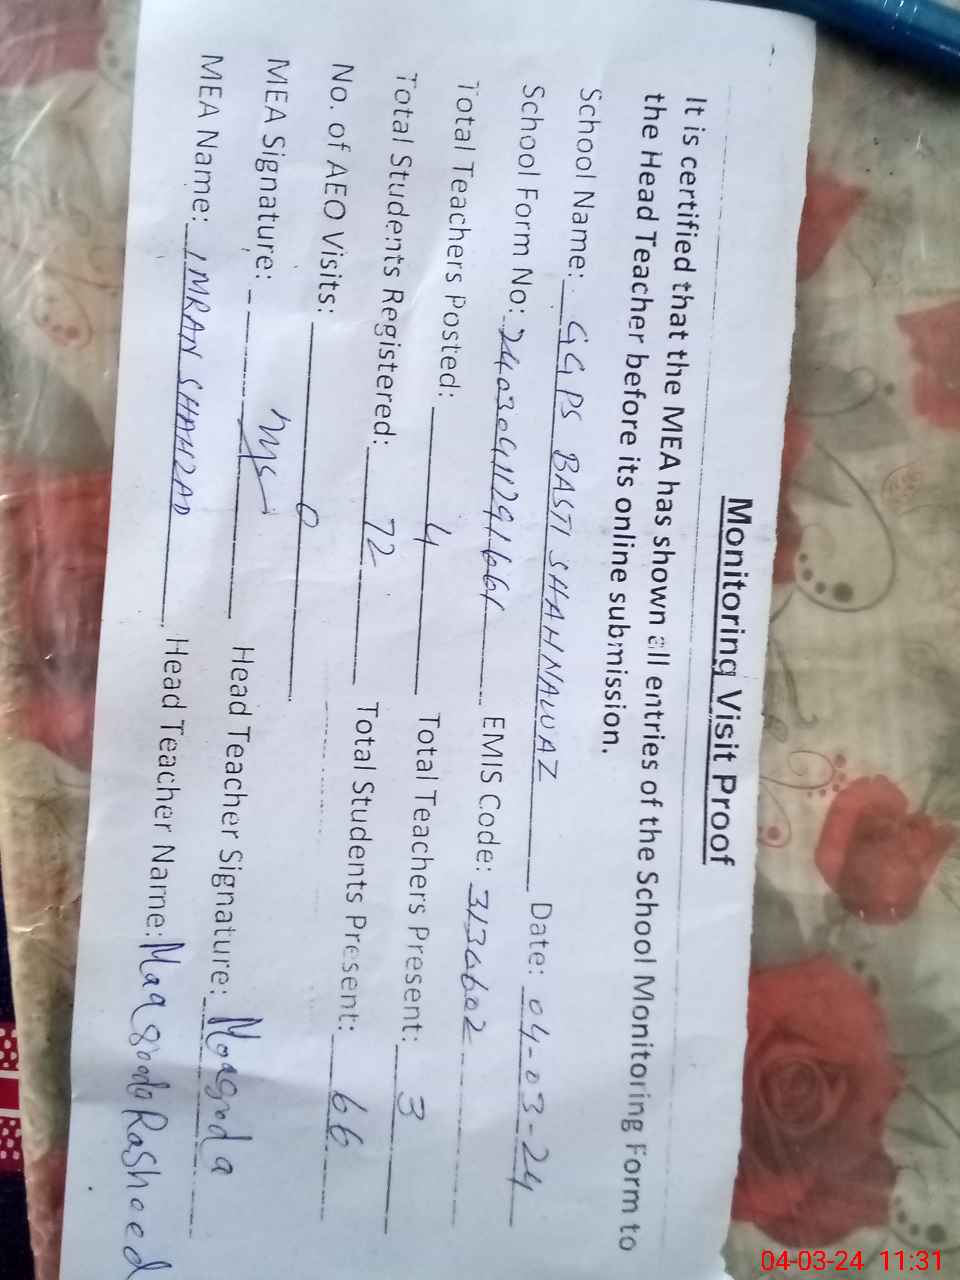 Monitoring Visit Proof
It is certified that the MEA has shown all entries of the School Monitoring Form to
the Head Teacher before its online submission.
School Name: GGPS BASTI SHAHNAWAZ Date: 04-03-24
School Form No: EMIS Code:
Total Teachers Posted: 4 Total Teachers Present: 3
Total Students Registered: 72 Total Students Present: 66
No. of AEO Visits: 0
MEA Signature: Head Teacher Signature:
MEA Name: IMRAN SHAHZAD Head Teacher Name: Rasheed
04-03-24 11:31